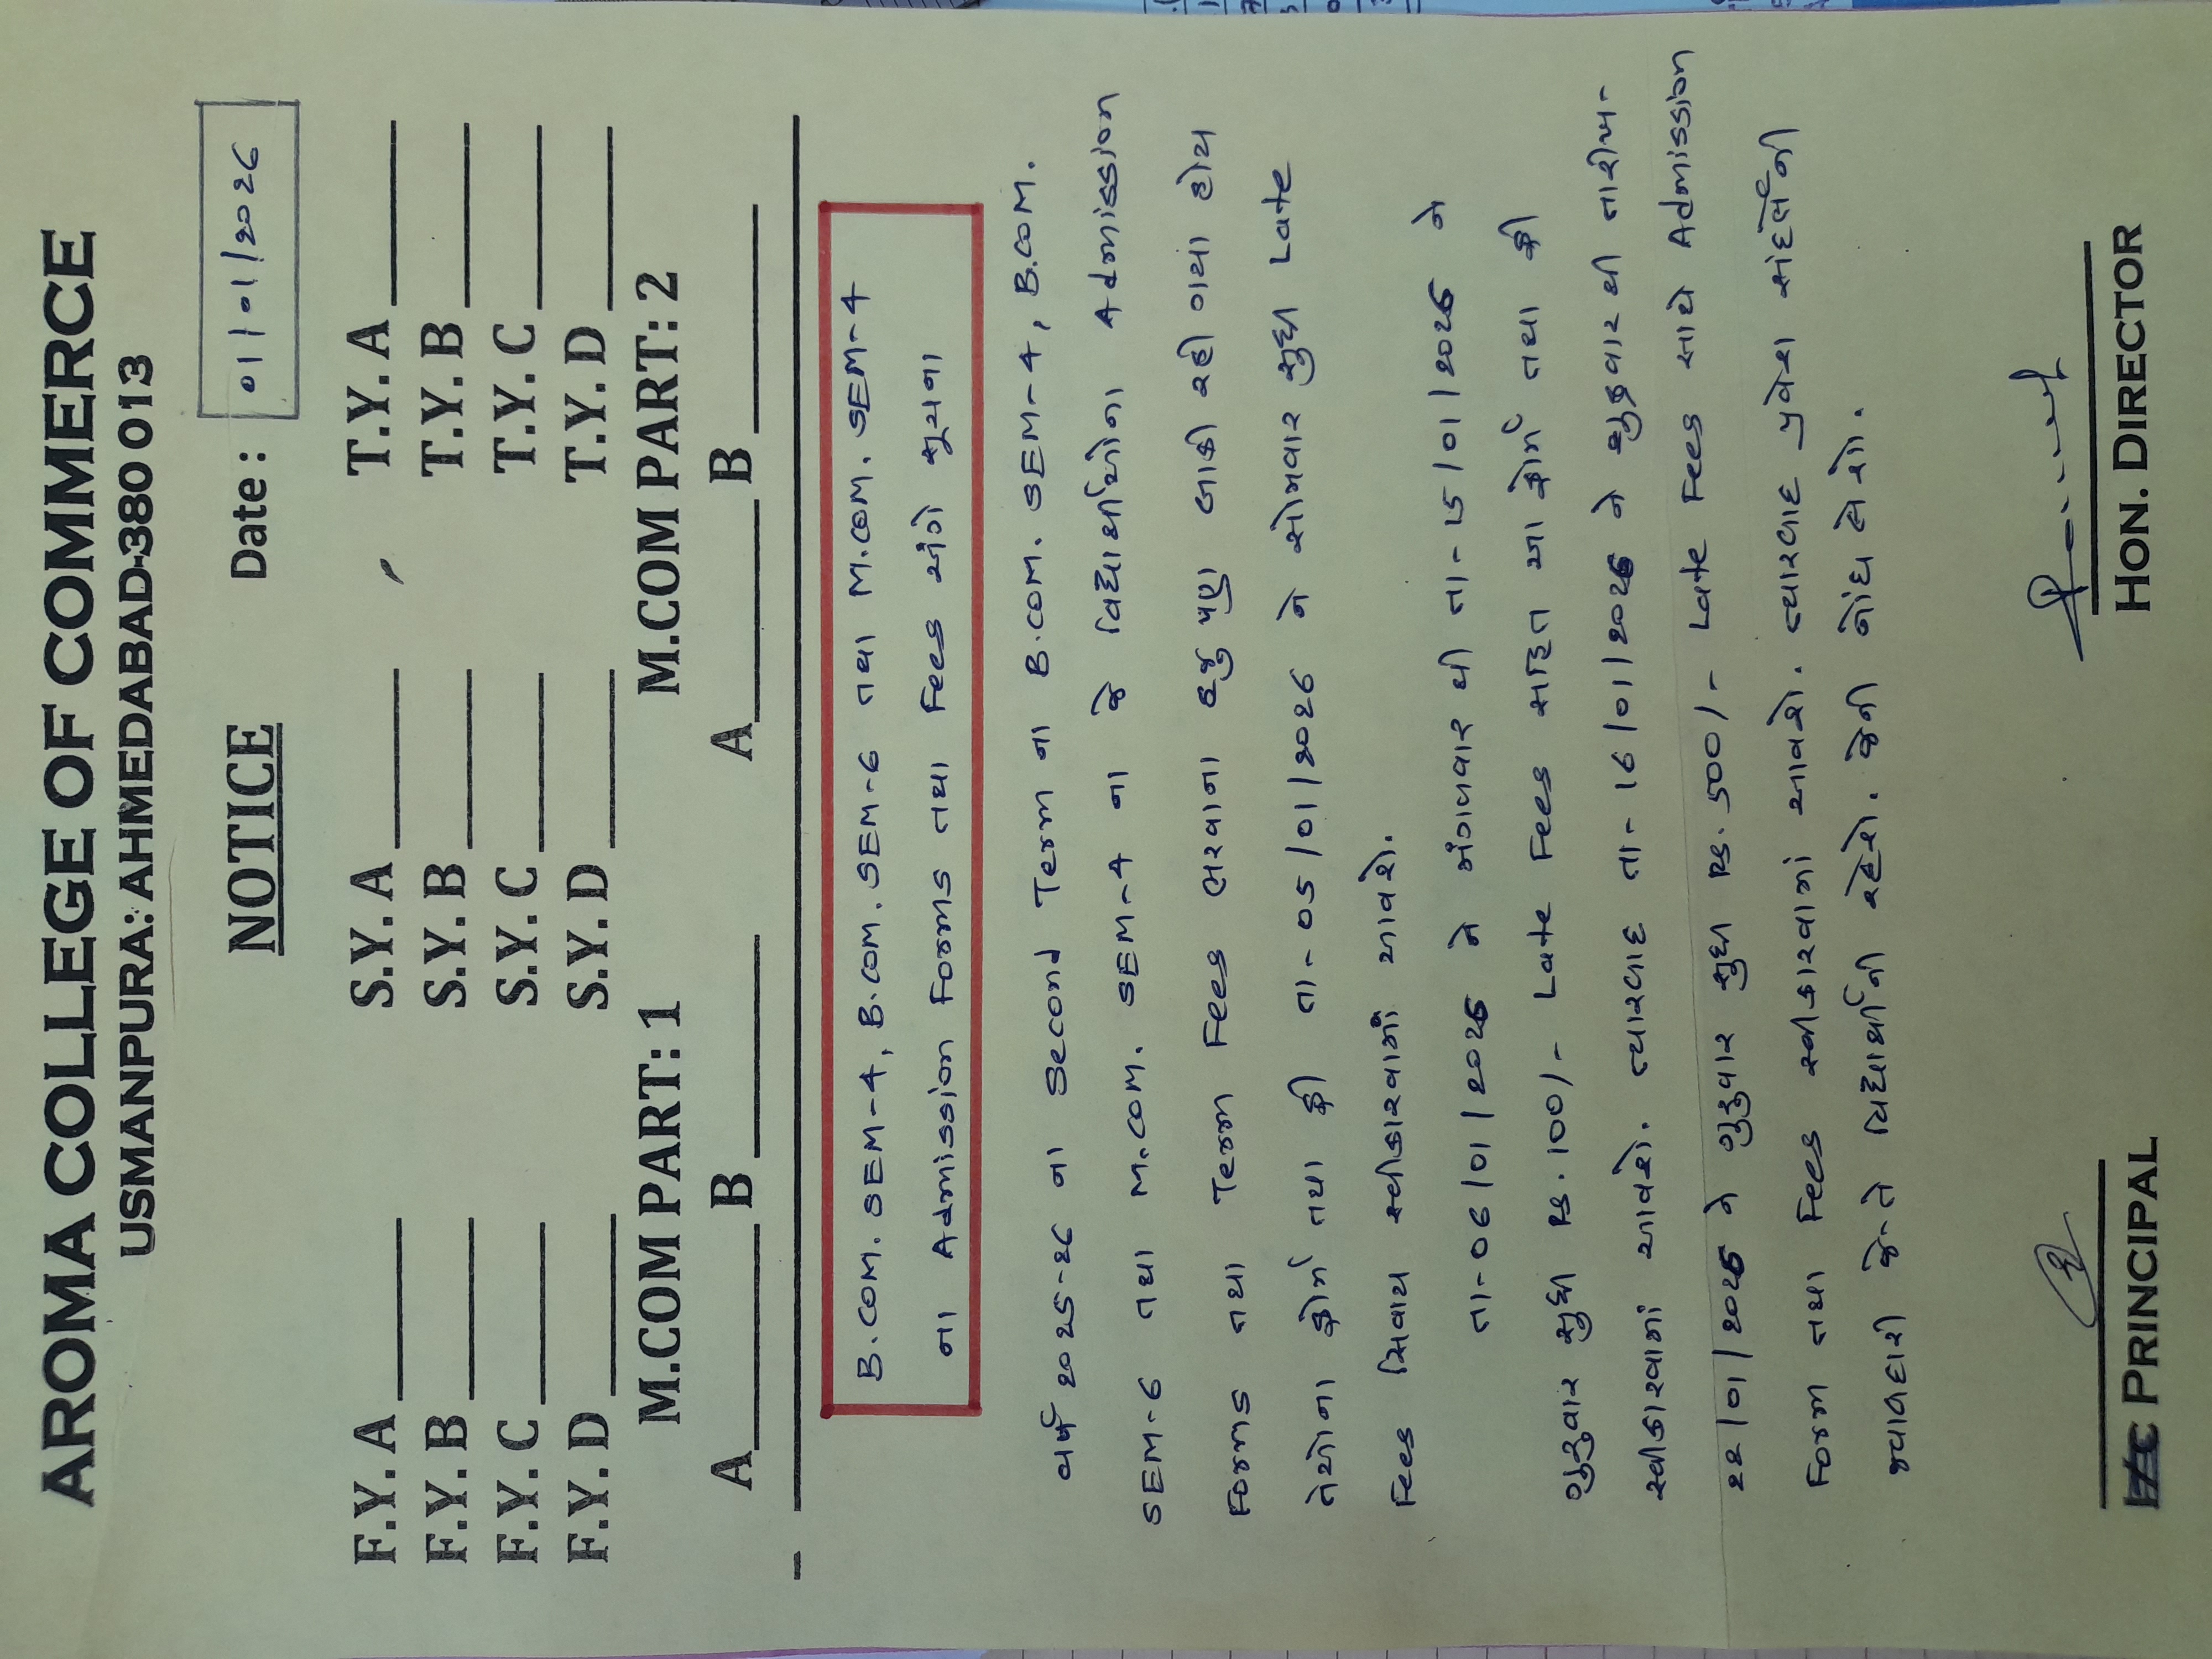 AROMA COLLEGE OF COMMERCE
USMANPURA: AHMEDABAD-380 013
NOTICE Date: 01/01/2026
F.Y. A S.Y. A T.Y. A
F.Y. B S.Y. B T.Y. B
F.Y. C S.Y. C T.Y. C
F.Y. D S.Y. D T.Y. D
M.COM PART: 1 M.COM PART: 2
A B A B
B.COM. SEM-4, B.COM. SEM-6 તથા M.COM. SEM-4
ના Admission Forms તથા Fees અંગે સૂચના
વર્ષ 2025-26 ના Second Term ના B.COM. SEM-4, B.COM.
SEM-6 તથા M.COM. SEM-4 ના જે વિદ્યાર્થીઓના Admission
Forms તથા Term Fees ભરવાના હજુ પણ બાકી રહી ગયાં હોય
તેઓના ફોર્મ તથા ફી તા-05/01/2026 ને સોમવાર સુધી Late
Fees સિવાય સ્વીકારવામાં આવશે.
તા-06/01/2026 ને મંગળવાર થી તા-15/01/2026 ને
ગુરુવાર સુધી RS.100/- Late Fees સહિત આ ફોર્મ તથા ફી
સ્વીકારવામાં આવશે. ત્યારબાદ તા-16/01/2026 ને શુક્રવાર થી તારીખ-
22/01/2026 ને ગુરુવાર સુધી RS.500/- Late Fees સાથે Admission
Form તથા Fees સ્વીકારવામાં આવશે. ત્યારબાદ પ્રવેશ સંદર્ભેની
જવાબદારી જે-તે વિદ્યાર્થીની રહેશે. જેની નોંધ લેશો.
PRINCIPAL HON. DIRECTOR